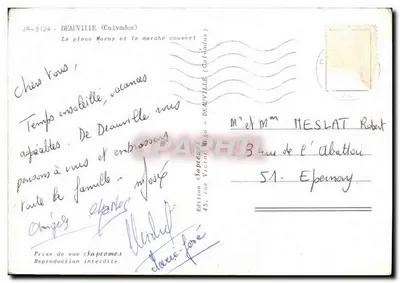 JR-5124 - DEAUVILLE (Calvados)
La place Morny et le marché couvert
Chers Vous,
Temps ensoleillé, vacances
agréables. De Deauville nous
pensons à vous et embrassons
toute la famille.
Marie-José
Mr et Mme MESLAT Robert
3 rue de l'Abattoir
51. Epernay
Edition "Supremos"
45, rue Victor Hugo - DEAUVILLE (Calvados)
Prise de vue «Supremos»
Reproduction interdite